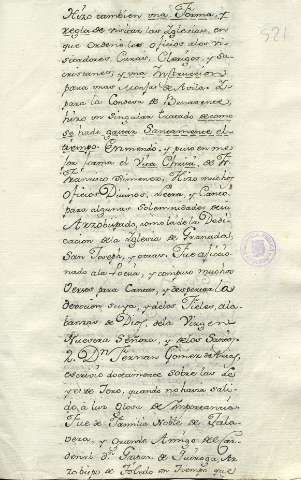 Hizo tambien una Forma, y
regla de visitar las Iglesias, en
que ordenò los oficios a los vi-
sitadores, Curas, Clerigos, y Sa-
cristanes, y una Instruccion
para unas Monjas de Avila. Y
para la Condesa de Benavente,
hizo un singular tratado de como
se hade gastar Santamente el
tiempo. Enmendò, y puso en me-
jor forma el Vita Christi, de Fr.
Francisco Ximenez. Hizo muchos
oficios Divinos, Letra, y Canto
para algunas solemnidades de su
Arzobispado, como la de la Dedi-
cacion de la Iglesia de Granada,
San Joseph, y otras. Fue aficio-
nado a la Poesia, y compuso muchos
versos para Cantar, y despertar la
devocion suya, y de los Fieles, ala-
banzas de Dios, de la Virgen
Nuestra Señora, y de los Santos.
2. Dn. Fernan Gomez de Arias,
escrivio doctamente sobre las Le-
yes de Toro, quando no havia sali-
do a luz Glosa de importancia.
Fue de Familia Noble de Tala-
vera, y Grande Amigo del Car-
denal Dn. Gaspar de Quiroga Ar-
zobispo de Toledo en tiempo que
521